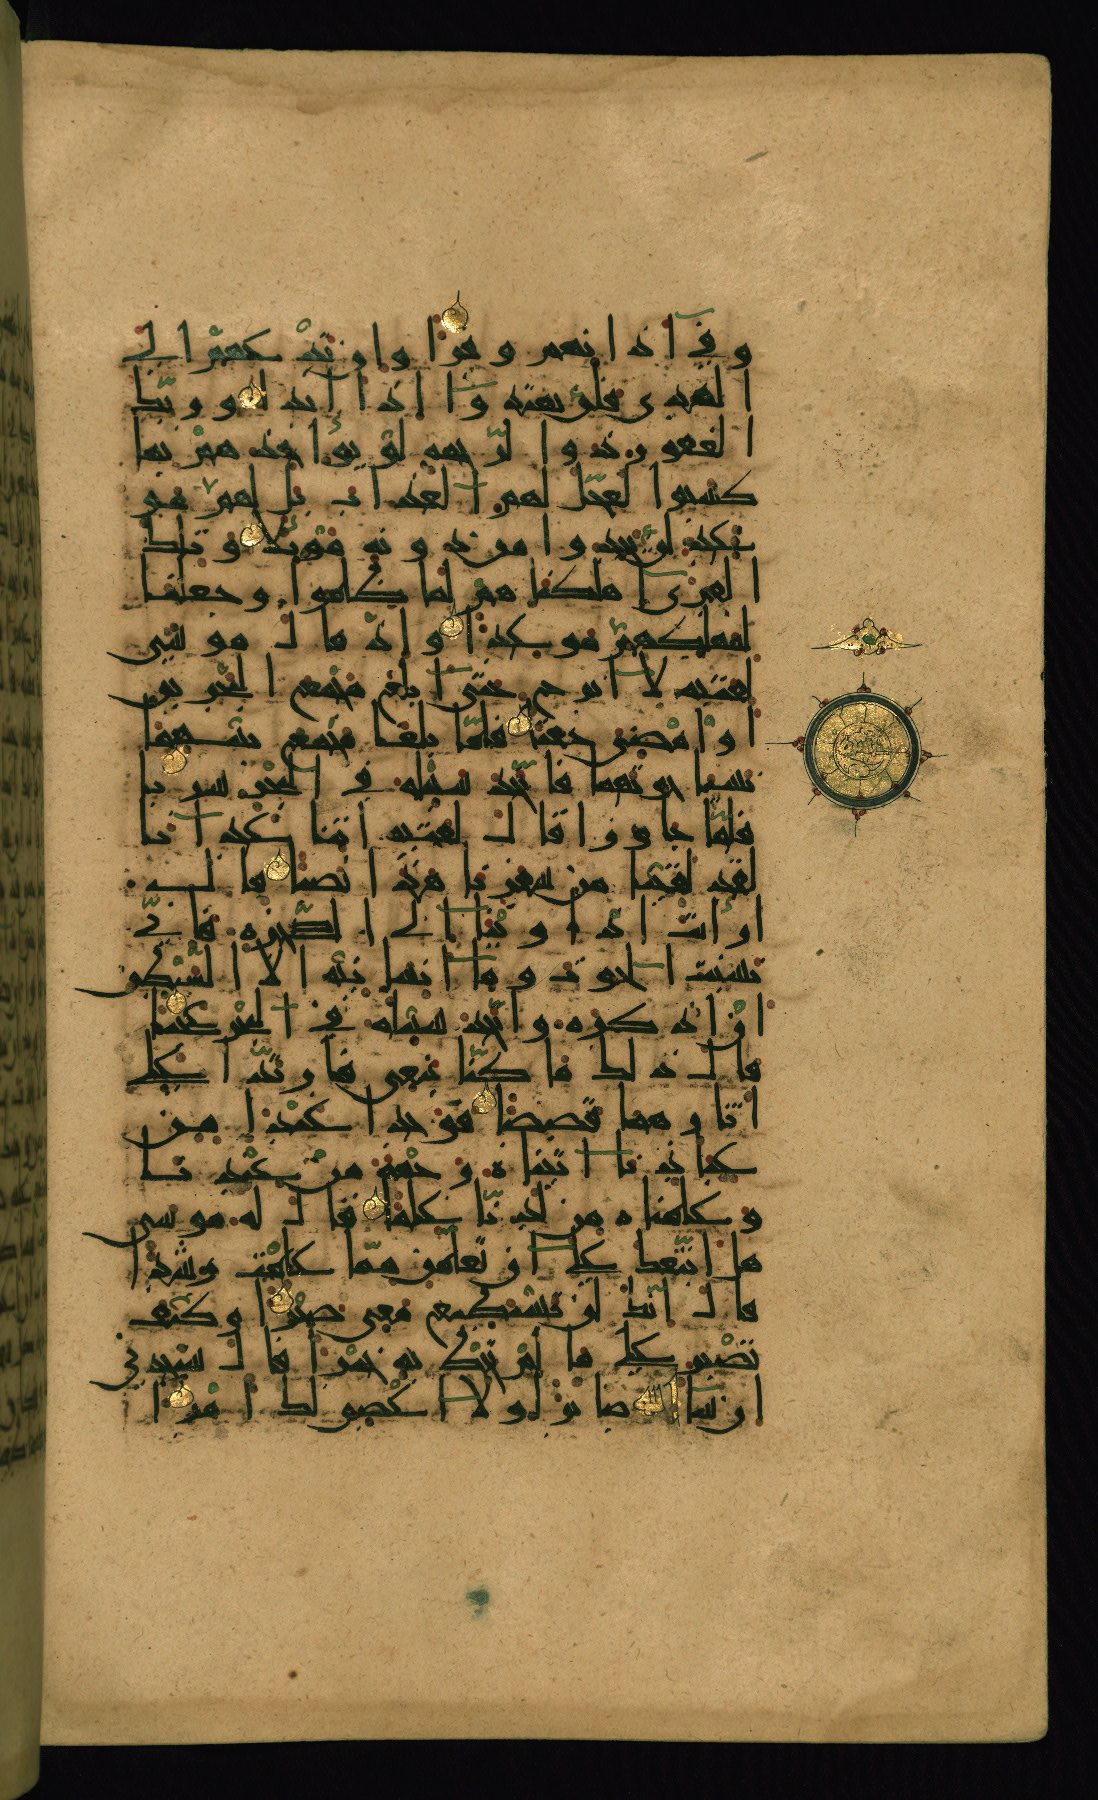 وفي اذانهم وقرا وان تدعهم الى
الهدى فلن يهتدوا اذا ابدا وربك
الغفور ذوا الرحمة لو يؤاخذهم بما
كسبوا لعجل لهم العذاب بل لهم مو
عد لن يجدوا من دونه موئلا وتلك
القرى اهلكناهم لما ظلموا وجعلنا
لمهلكهم موعدا واذ قال موسى
لفتيه لا ابرح حتى ابلغ مجمع البحرين
او امضي حقبا فلما بلغا مجمع بينهما
نسيا حوتهما فاتخذ سبيله في البحر سربا
فلما جاوزا قال لفتيه اتنا غدانا
لقد لقينا من سفرنا هذا نصبا قال
ارأيت اذ اوينا الى الصخرة فاني
نسيت الحوت وما انسانيه الا الشيطن
ان اذكره واتخذ سبيله في البحر عجبا
قال ذلك ما كنا نبغي فارتدا على
اثارهما قصصا فوجدا عبدا من
عبادنا اتيناه رحمة من عندنا
وعلمناه من لدنا علما قال له موسى
هل اتبعك على ان تعلمن مما علمت رشدا
قال انك لن تستطيع معي صبرا وكيف
تصبر على ما لم تحط به خبرا قال ستجدني
ان شا الله صابرا ولا اعصي لك امرا